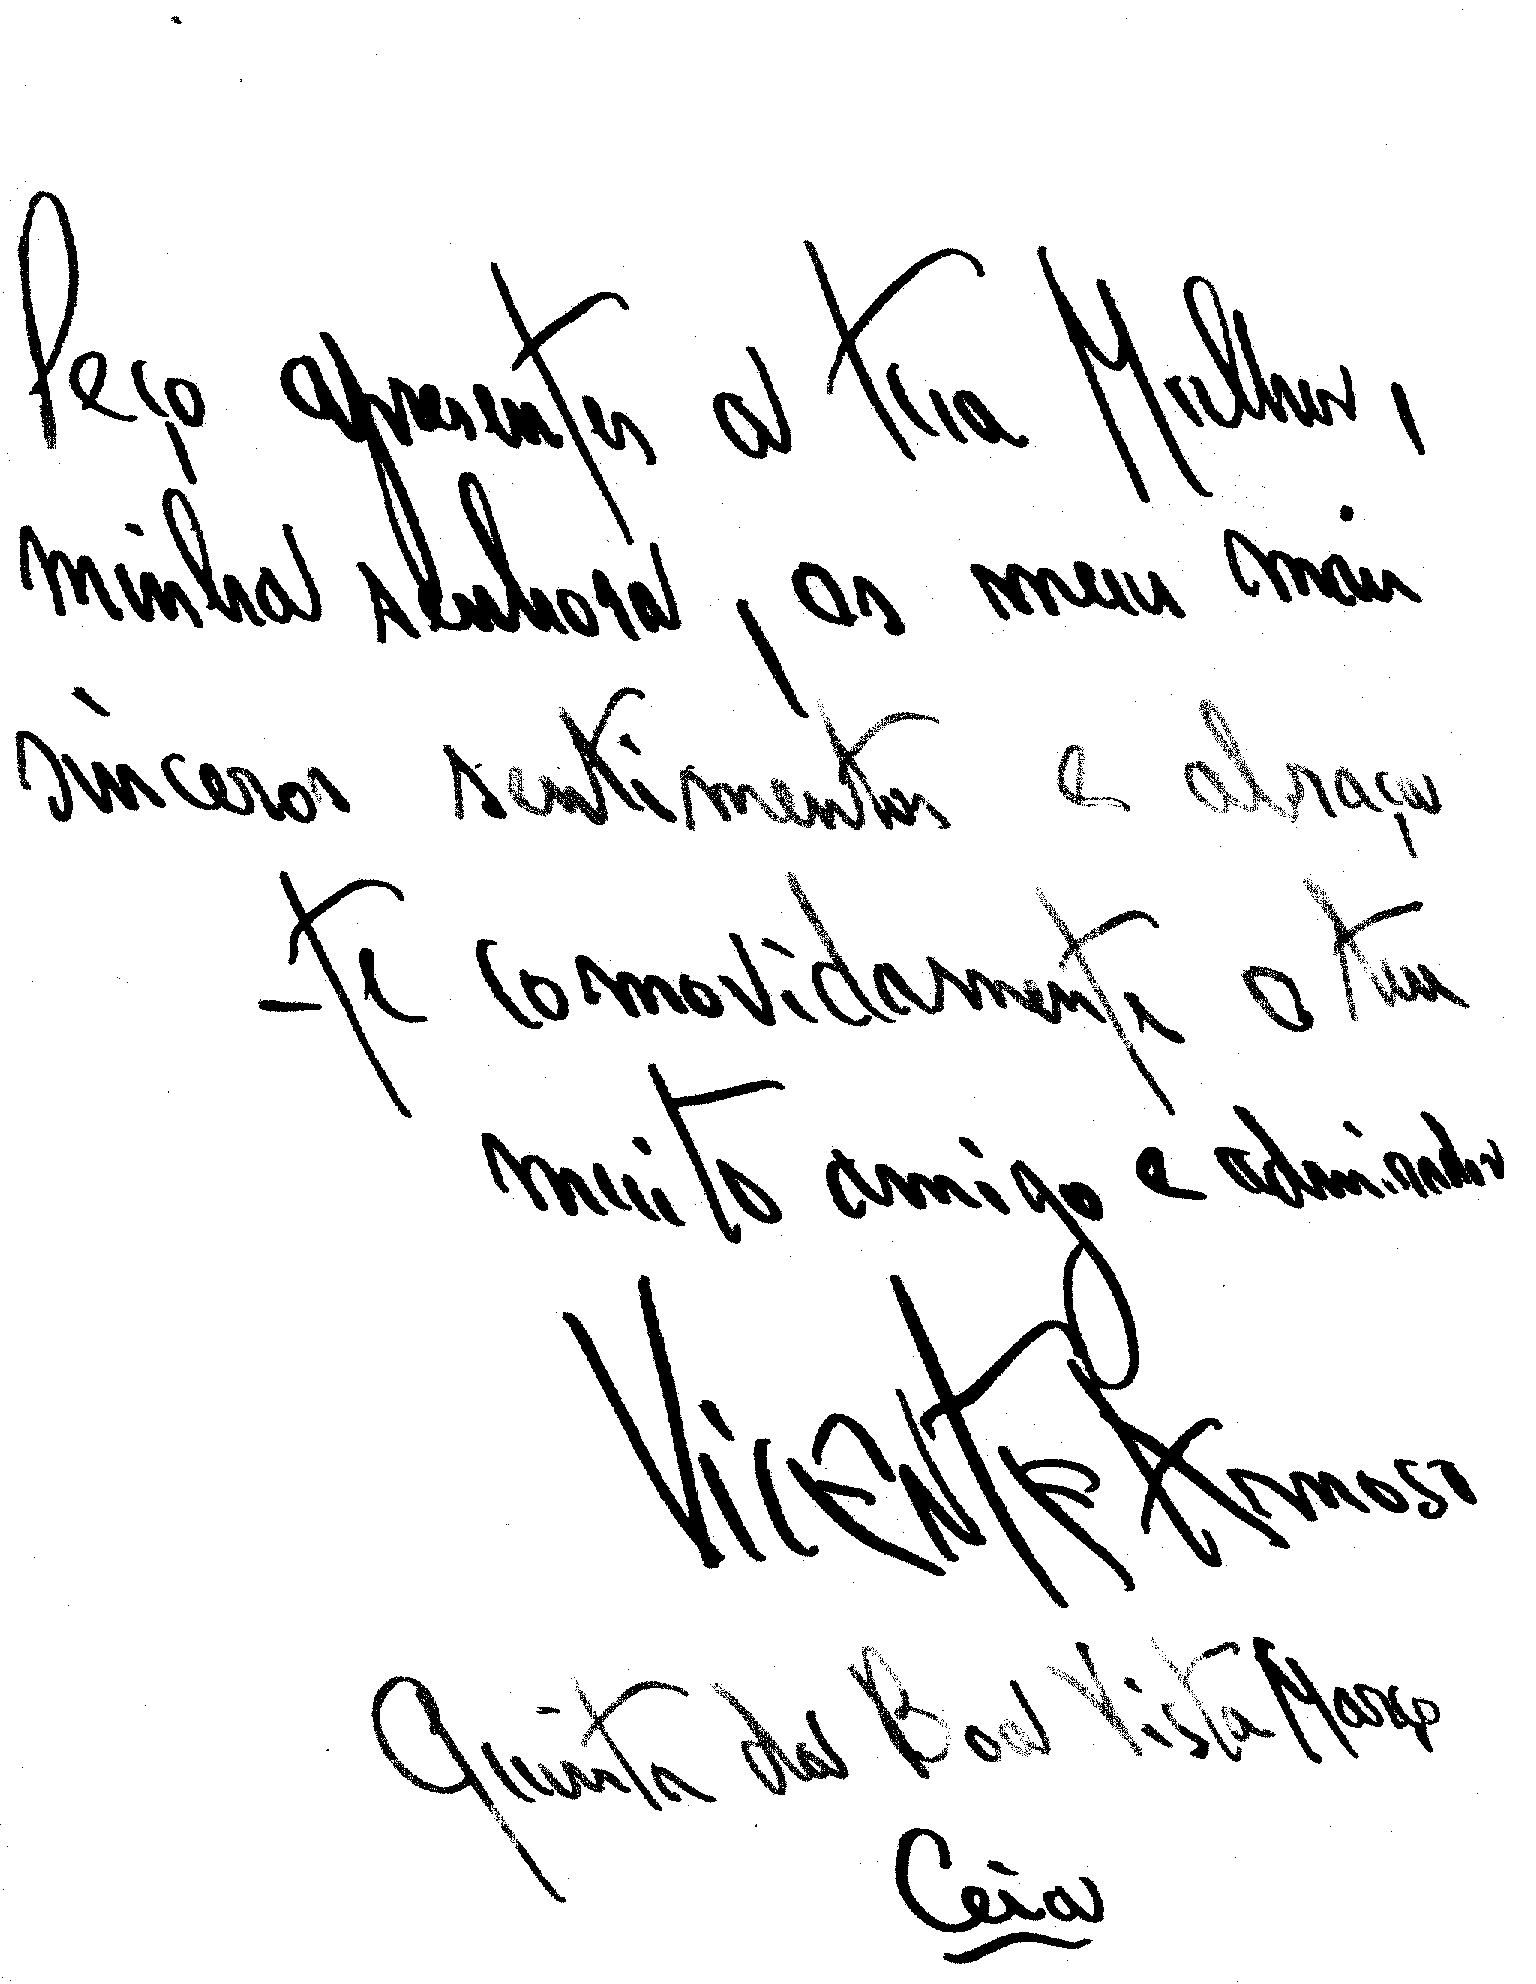 Peço apresentes a tua Mulher,
minha senhora, os meus mais
sinceros sentimentos e abraço
-te comovidamente o teu
muito amigo e admirador
VICENTE Arnoso
Quinta da Boa Vista Março
Ceia